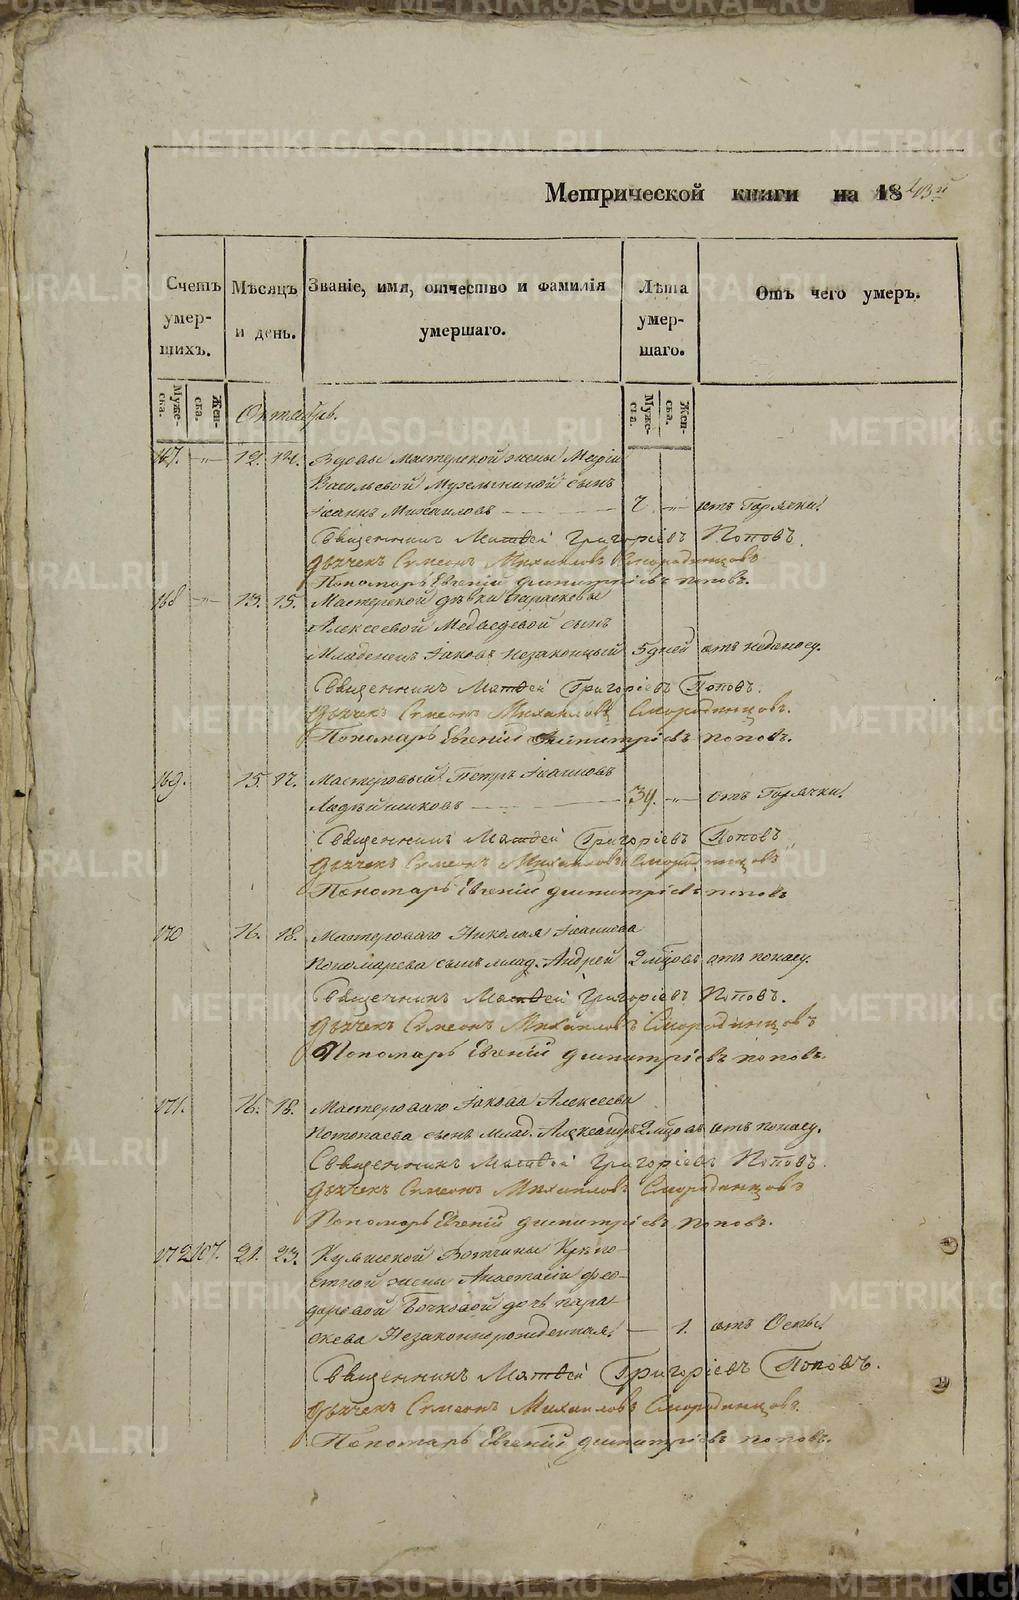 Метрической книги на 1843й
Счетъ умершихъ.
Мѣсяцъ и день.
Званіе, имя, отчество и фамилія умершаго.
Лѣта умершаго.
Отъ чего умеръ.
Мужеска.
Женска.
Мужеска.
Женска.
Октябрь.
167. — " — 12. 14. Вдовы мастерской жены Маріи
Васильевой сынъ
Іоаннъ Михаиловъ 7 — " — отъ Горячки
Священникъ Матѳей Григоріевъ Поповъ.
Дьячекъ Сѵмеонъ Михаиловъ Смородинцовъ
Пономарь Евгеній Димитріевъ Поповъ.
168 — " — 13. 15. Мастерской дѣвки Парасковьи
Алексеевой Медведевой сынъ
Младенецъ Іаковъ незаконный 5 дней отъ
Священникъ Матѳей Григоріевъ Поповъ.
Дьячекъ Сѵмеонъ Михаиловъ Смородинцовъ.
Пономарь Евгеній Димитріевъ Поповъ.
169. 15. 17. Мастеровый Петръ Іоанновъ
34. — " — отъ Горячки
Священникъ Матѳей Григоріевъ Поповъ
Дьячекъ Сѵмеонъ Михаиловъ Смородинцовъ
Пономарь Евгеній Димитріевъ Поповъ
170 16. 18. Мастероваго Николая Іоаннова
Пономарева сынъ млад. Андрей 2 мѣцовъ отъ поносу.
Священникъ Матѳей Григоріевъ Поповъ.
Дьячекъ Сѵмеонъ Михаиловъ Смородинцовъ
Пономарь Евгеній Димитріевъ Поповъ.
171. 16. 18. Мастероваго Іакова Алексеева
Потопаева сынъ млад. Александръ 2 мѣцовъ отъ поносу.
Священникъ Матѳей Григоріевъ Поповъ.
Дьячекъ Сѵмеонъ Михаиловъ Смородинцовъ
Пономарь Евгеній Димитріевъ Поповъ.
172 107. 21. 23. Вотчины Крѣпо-
стной жены Анастасіи Ѳео-
доровой Бочковой дочь Пара-
скева Незаконнорожденная — 1. отъ Оспы
Священникъ Матѳей Григоріевъ Поповъ.
Дьячекъ Сѵмеонъ Михаиловъ Смородинцовъ.
Пономарь Евгеній Димитріевъ Поповъ.
METRIKI.GASO-URAL.RU